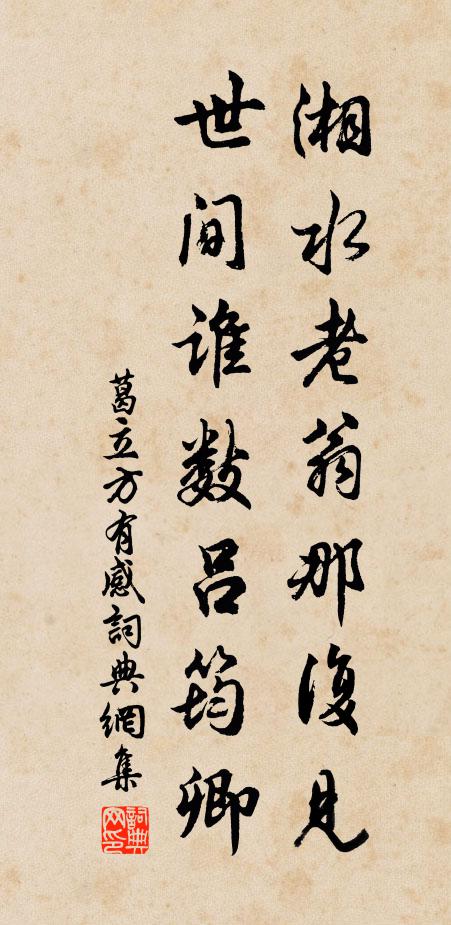 湘水老翁那復見
世间誰數吕筠卿
葛立方有感詞典網集
詞典网印